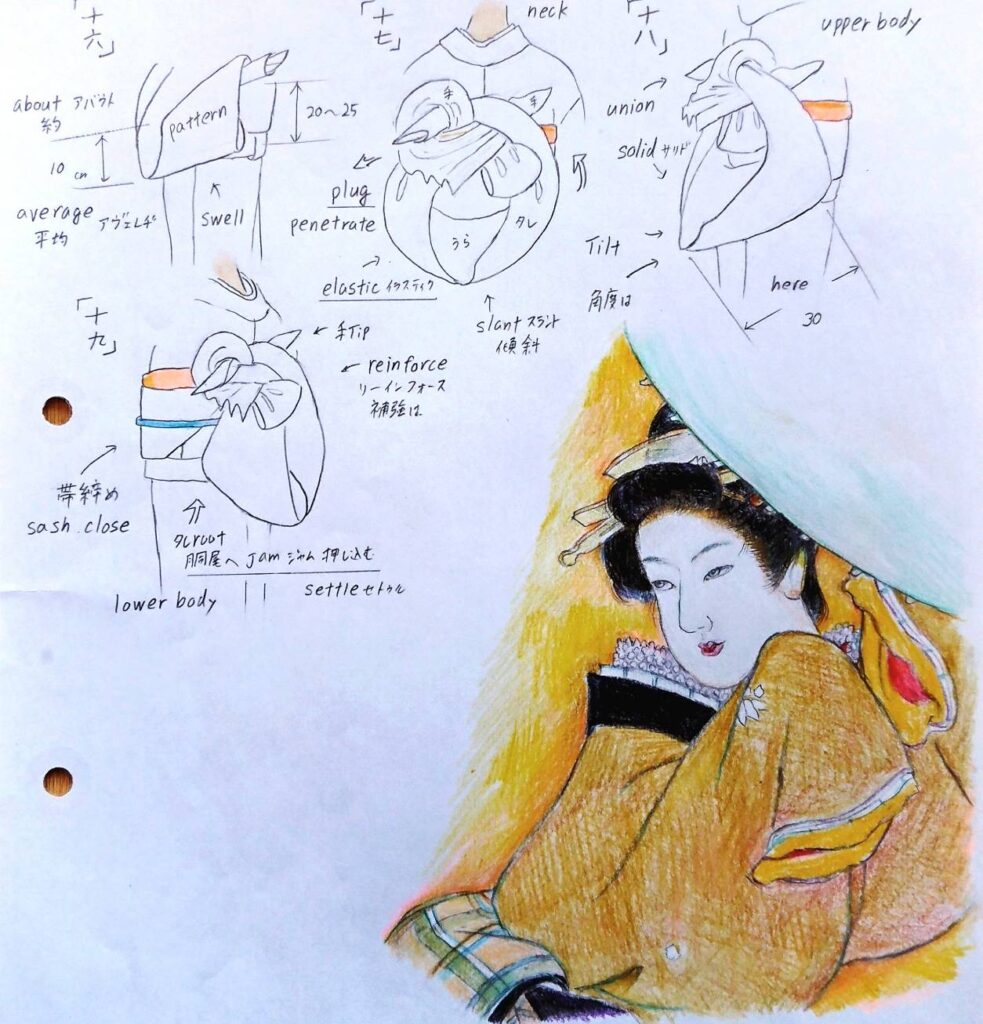 「十六」
about アバウト
約
10 cm
average アヴェレヂ
平均
pattern
20〜25
swell
「十七」
neck
手
手
plug
penetrate
うら
タレ
elastic イラスティク
slant スラント
傾斜
「十八」
upper body
union
solid サリド
Tilt
角度は
here
30
「十九」
手Tip
reinforce
リーインフォース
補強は
帯締め
sash close
タレroot
胴屋へ Jam ジャム 押し込む
settle セトゥル
lower body